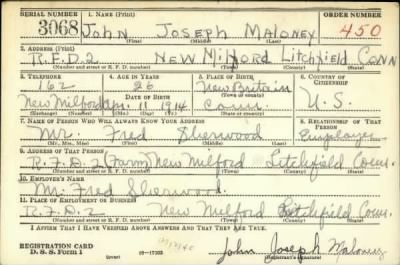 SERIAL NUMBER 1. NAME (Print) ORDER NUMBER
3068 JOHN JOSEPH MALONEY 450
(First) (Middle) (Last)
2. ADDRESS (Print)
R.F.D.2 NEW MILFORD LITCHFIELD CONN
(Number and street or R. F. D. number) (Town) (County) (State)
3. TELEPHONE 4. AGE IN YEARS 5. PLACE OF BIRTH 6. COUNTRY OF CITIZENSHIP
162 26 New Britain
DATE OF BIRTH
New Milford Apr. 11 1914 Conn. U.S.
(Exchange) (Number) (Mo.) (Day) (Yr.) (State or country)
7. NAME OF PERSON WHO WILL ALWAYS KNOW YOUR ADDRESS 8. RELATIONSHIP OF THAT PERSON
Mr. Fred Sherwood Employer
(Mr., Mrs., Miss) (First) (Middle) (Last)
9. ADDRESS OF THAT PERSON
R.F.D. 2 (Farm) New Milford Litchfield Conn.
(Number and street or R. F. D. number) (Town) (County) (State)
10. EMPLOYER'S NAME
Mr. Fred Sherwood.
11. PLACE OF EMPLOYMENT OR BUSINESS
R.F.D. 2 New Milford Litchfield Conn.
(Number and street or R. F. D. number) (Town) (County) (State)
I AFFIRM THAT I HAVE VERIFIED ABOVE ANSWERS AND THAT THEY ARE TRUE.
REGISTRATION CARD
D. S. S. Form 1 (over) John Joseph Maloney
(Registrant's signature)